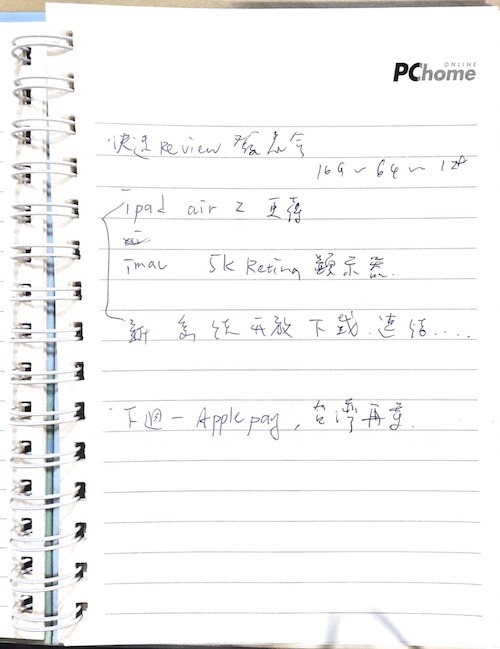 ONLINE
PChome
快速 Review 發表會
16G ~ 64 ~ 128
ipad air 2 更薄
imac 5k Retina 顯示器.
新系統開放下載.連結....
下週一 Apple pay, 台灣再等.